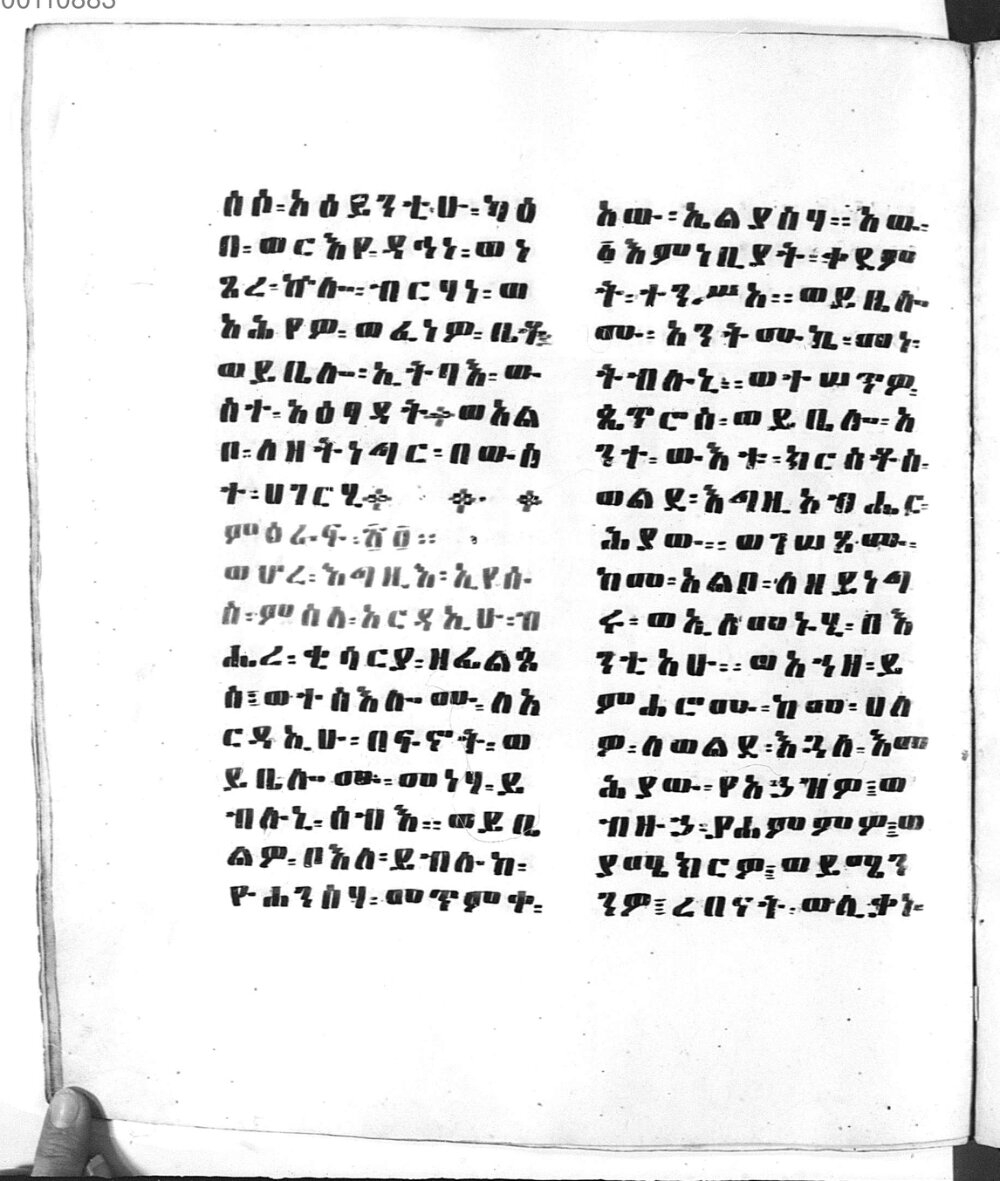 00110883
ሰሶ፡አዕይንቲሁ፡ካዕ
በ፡ወርእየ፡ዳኅነ፡ወነ
ጸረ፡ኵሎ፡ብርሃነ፡ወ
አሕየም፡ወፈነም፡ቤቶ፡
ወይቤሎ፡ኢትባእ፡ው
ስተ፡አዕፃዳት፡ወአል
ቦ፡ለዘትነግር፡በውስ
ተ፡ሀገርሂ፨ ፨ ፨
ምዕራፍ፡
ወሖረ፡እግዚእ፡ኢየሱ
ስ፡ምስለ፡አርዳኢሁ፡ብ
ሔረ፡ቂሳርያ፡ዘፊልጶ
ስ፤ወተስእሎሙ፡ለአ
ርዳኢሁ፡በፍኖት፡ወ
ይቤሎሙ፡መነሃ፡ይ
ብሉኒ፡ሰብእ፡፡ወይቤ
ልዎ፡ቦእለ፡ይብሉ፡ከ፡
ዮሐንስሃ፡መጥምቀ፡
አው፡ኢልያስሃ፡፡አው፡
፩እምነቢያት፡ቀደም
ት፡ተንሥአ፡፡ወይቤሎ
ሙ፡አንትሙኬ፡መነ፡
ትብሉኒ፡፡ወተሠጥዎ
ጴጥሮስ፡ወይቤሎ፡አ
ንተ፡ውእቱ፡ክርስቶስ፡
ወልደ፡እግዚአብሔር፡
ሕያው፡፡ወገሠጾሙ፡
ከመ፡አልቦ፡ለዘይነግ
ሩ፡ወኢለመኑሂ፡በእ
ንቲአሁ፡፡ወአኀዘ፡ይ
ምሐሮሙ፡ከመ፡ሀለ
ዎ፡ለወልደ፡እጓለ፡እመ
ሕያው፡የአኀዝዎ፤ወ
ብዙኃ፡ያሐምምዎ፤ወ
ያመሂክርዎ፤ወይሜን
ንዎ፤ረበናት፡ወሊቃነ፡